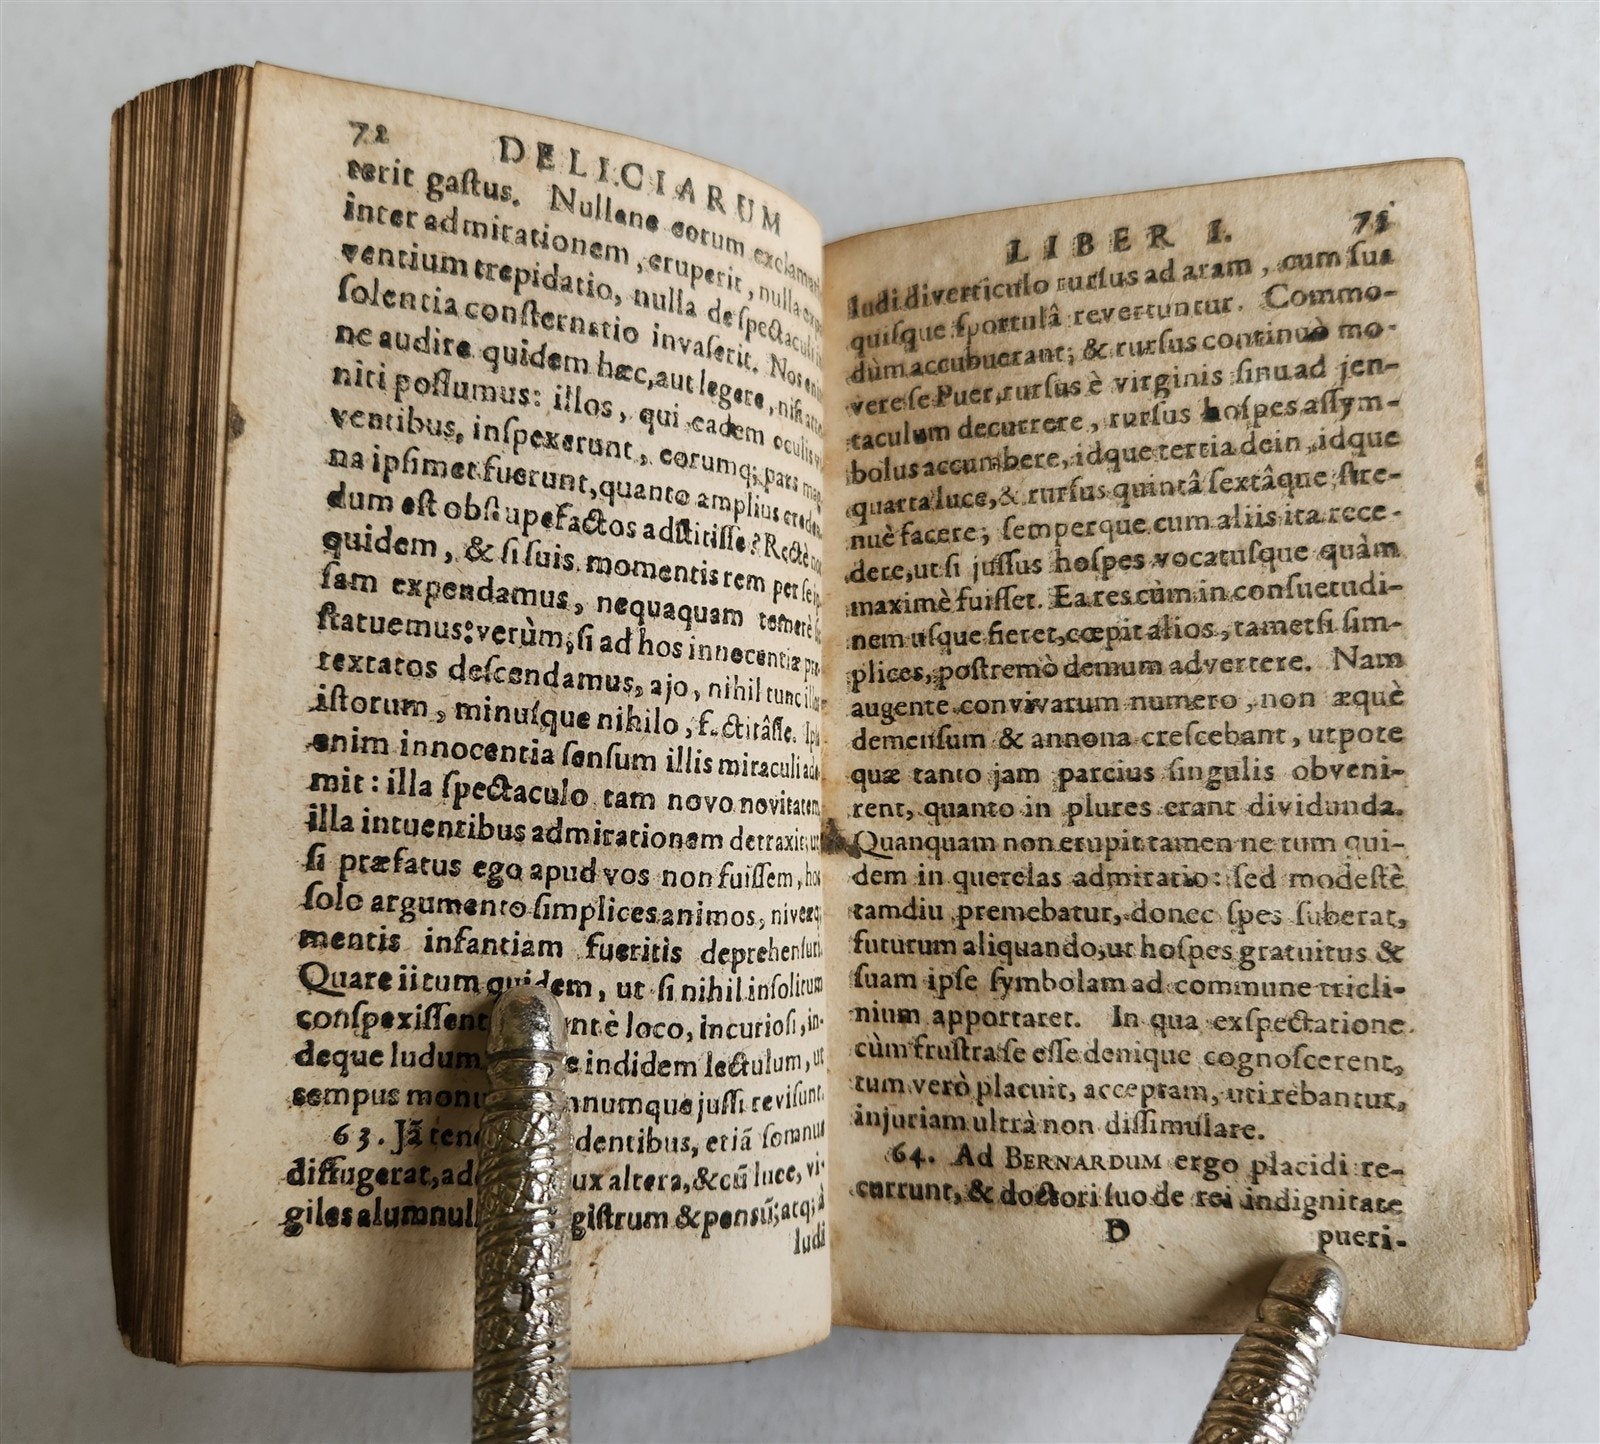 72 DELICIARUM
terit gaſtus. Nullene eorum
inter admirationem, eruperit, nulla
ventium trepidatio, nulla de ſpectaculi
ſolentia conſternatio invaſerit. Nos
ne audire quidem hæc, aut legere, niſi
niti poſſumus: illos, qui eadem oculis
ventibus, inſpexerunt, eorumq; pars
na ipſimet fuerunt, quanto amplius
dum eſt obſtupefactos adſtitiſſe? Rectè
quidem, & ſi ſuis momentis rem per ſe
ſam expendamus, nequaquam temerè
ſtatuemus: verùm, ſi ad hos innocentiæ
textatos deſcendamus, ajo, nihil tunc
iſtorum, minuſque nihilo, factitâſſe.
enim innocentia ſenſum illis miraculi
mit: illa ſpectaculo tam novo novitatem,
illa intuentibus admirationem detraxit:
ſi præfatus ego apud vos non fuiſſem,
ſolo argumento ſimplices animos,
mentis infantiam fueritis
Quare ii tum quidem, ut ſi nihil inſolitum
conſpexiſſent è loco, incurioſi, in-
deque ludum indidem lectulum, ut
tempus juſſi reviſunt.
63. Jã dentibus, etiã ſomnus
diffugerat, altera, & cũ luce, vi-
giles & penſũ; atq; à
ludi
LIBER I. 73
ludi diverticulo rurſus ad aram, cum ſua
quiſque ſportulâ revertuntur. Commo-
dùm accubuerant; & rurſus continuò mo-
vere ſe Puer, rurſus è virginis ſinu ad jen-
taculum decurrere, rurſus hoſpes aſſym-
bolus accumbere, idque tertia dein, idque
quarta luce, & rurſus quintâ ſextâque ſtre-
nuè facere; ſemperque cum aliis ita rece-
dere, ut ſi juſſus hoſpes vocatuſque quàm
maximè fuiſſet. Ea res cùm in conſuetudi-
nem uſque fieret, cœpit alios, tametſi ſim-
plices, poſtremò demum advertere. Nam
augente convivarum numero, non æquè
demenſum & annona creſcebant, utpote
quæ tanto jam parcius ſingulis obveni-
rent, quanto in plures erant dividunda.
Quanquam non erupit tamen ne tum qui-
dem in querelas admiratio: ſed modeſtè
tamdiu premebatur, donec ſpes ſuberat,
futurum aliquando, ut hoſpes gratuitus &
ſuam ipſe ſymbolam ad commune tricli-
nium apportaret. In qua exſpectatione
cùm fruſtra ſe eſſe denique cognoſcerent,
tum verò placuit, acceptam, uti rebantur,
injuriam ultrà non diſſimulare.
64. Ad BERNARDUM ergo placidi re-
currunt, & doctori ſuo de rei indignitate
D pueri-